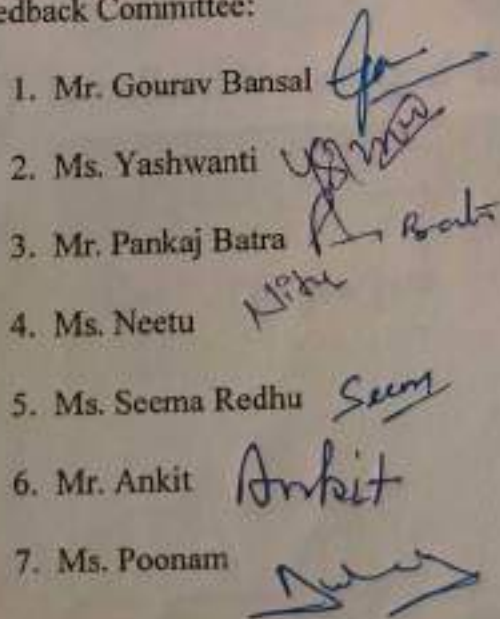 edback Committee:
1. Mr. Gourav Bansal
2. Ms. Yashwanti
3. Mr. Pankaj Batra
Nitu
4. Ms. Neetu
5. Ms. Seema Redhu Seem
6. Mr. Ankit Ankit
7. Ms. Poonam